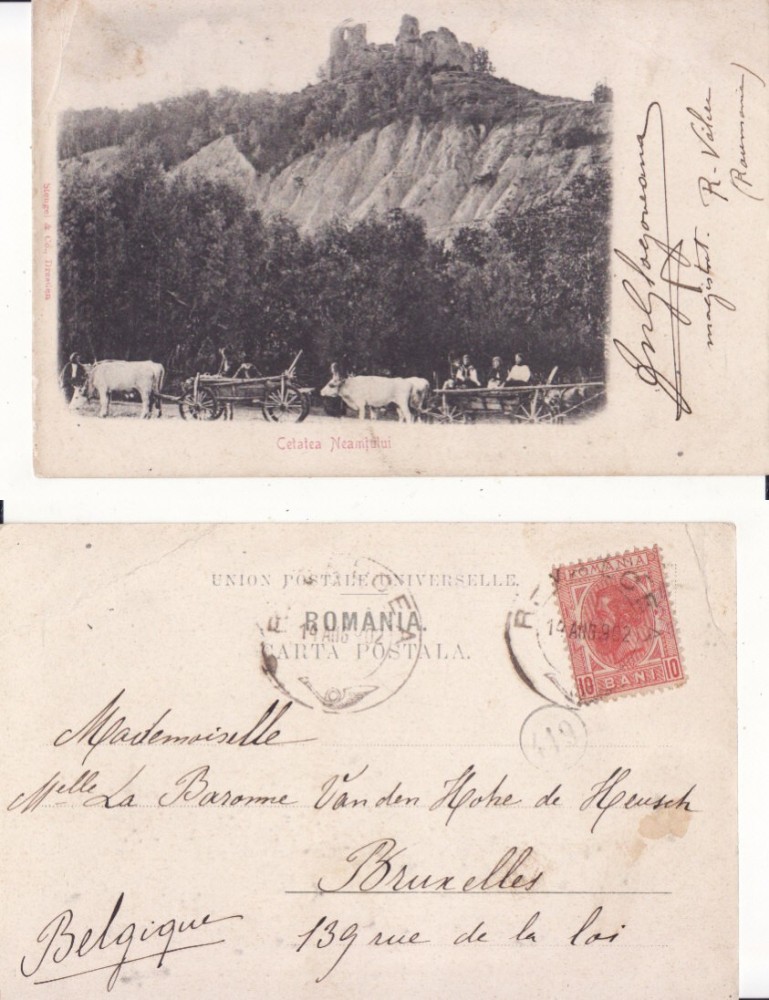 Stengel & Co., Dresden
Cetatea Neamţului
magistrat. R-Vâlcei
(Roumanie)
UNION POSTALE UNIVERSELLE.
ROMANIA.
CARTA POSTALA.
14 AUG 902
ROMANIA
14 AUG 902
10 BANI 10
419
Mademoiselle
Melle La Baronne Van den Hohe de Heusch
Bruxelles
Belgique
139 rue de la loi